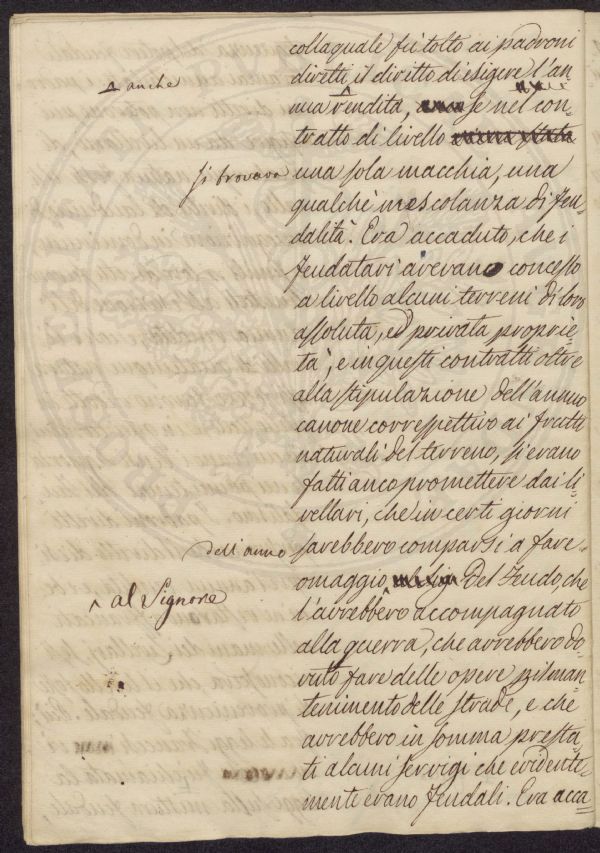 colla quale fù tolto ai padroni
diretti il diritto di esigere l'an-
^ anche
nua rendita, se nel con-
tratto di livello
si trovava una sola macchia, una
qualchè mescolanza di feu-
dalità. Era accaduto, che i
feudatari avevano concesso
a livello alcuni terreni di loro
assoluta, ed privata proprie-
tà, e in questi contratti oltre
alla stipulazione dell'annuo
canone correspettivo ai frutti
naturali del terreno, si erano
fatti anco promettere dai li-
vellari, che in certi giorni
dell'anno sarebbero comparsi a fare
omaggio Del feudo, che
^ al Signore
l'avrebbero accompagnato
alla guerra, che avrebbero do-
vuto fare delle opere pil man-
tenimento delle strade, e che
avrebbero in somma presta-
ti alcuni servigi che evidente-
mente erano feudali. Era acca-